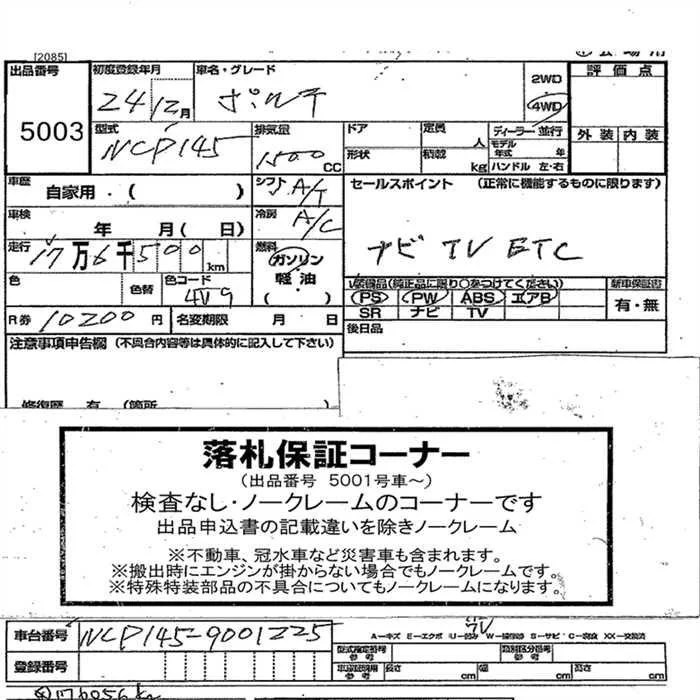 [2085]
出品番号 5003
初度登録年月 24/12月
車名・グレード ポルテ
2WD
4WD
評価点
外装 内装
型式 NCP145
排気量 1500 CC
ドア
形状
定員 人
積載 kg
ディーラー・並行
モデル年式 年
ハンドル 左・右
車歴 自家用・( )
シフト A/T
セールスポイント (正常に機能するものに限ります)
車検 年 月( 日)
冷房 A/C
ナビ TV ETC
走行 17万6千500km
燃料 ガソリン
軽油
( )
色 色替 色コード 4V9
装備品(純正品に限り○をつけてください) 新車保証書
PS PW ABS エアB 有・無
SR ナビ TV
R券 10200円 名変期限 月 日
後日品
注意事項申告欄 (不具合内容等は具体的に記入して下さい)
修復歴 有 (箇所 )
落札保証コーナー
(出品番号 5001号車~)
検査なし・ノークレームのコーナーです
出品申込書の記載違いを除きノークレーム
※不動車、冠水車など災害車も含まれます。
※搬出時にエンジンが掛からない場合でもノークレームです。
※特殊特装部品の不具合についてもノークレームになります。
車台番号 NCP145-9001225
A−キズ E−エクボ U−凹み W−補修跡 S−サビ C−腐食 XX−交換済
型式指定番号 参考 類別区分番号 参考
登録番号
車検証記載 参考 長さ cm 幅 cm 高さ cm